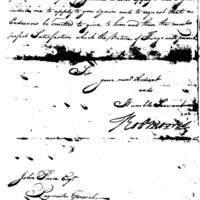 induce me to apply to you again and to request that no
Endeavor be omitted to give to him and them the most
perfect Satisfaction which the Nature of Things will
Sir
your most Obedient
and
Humble Servant
Rob Morris
John Pierce Esqr
Paymaster General